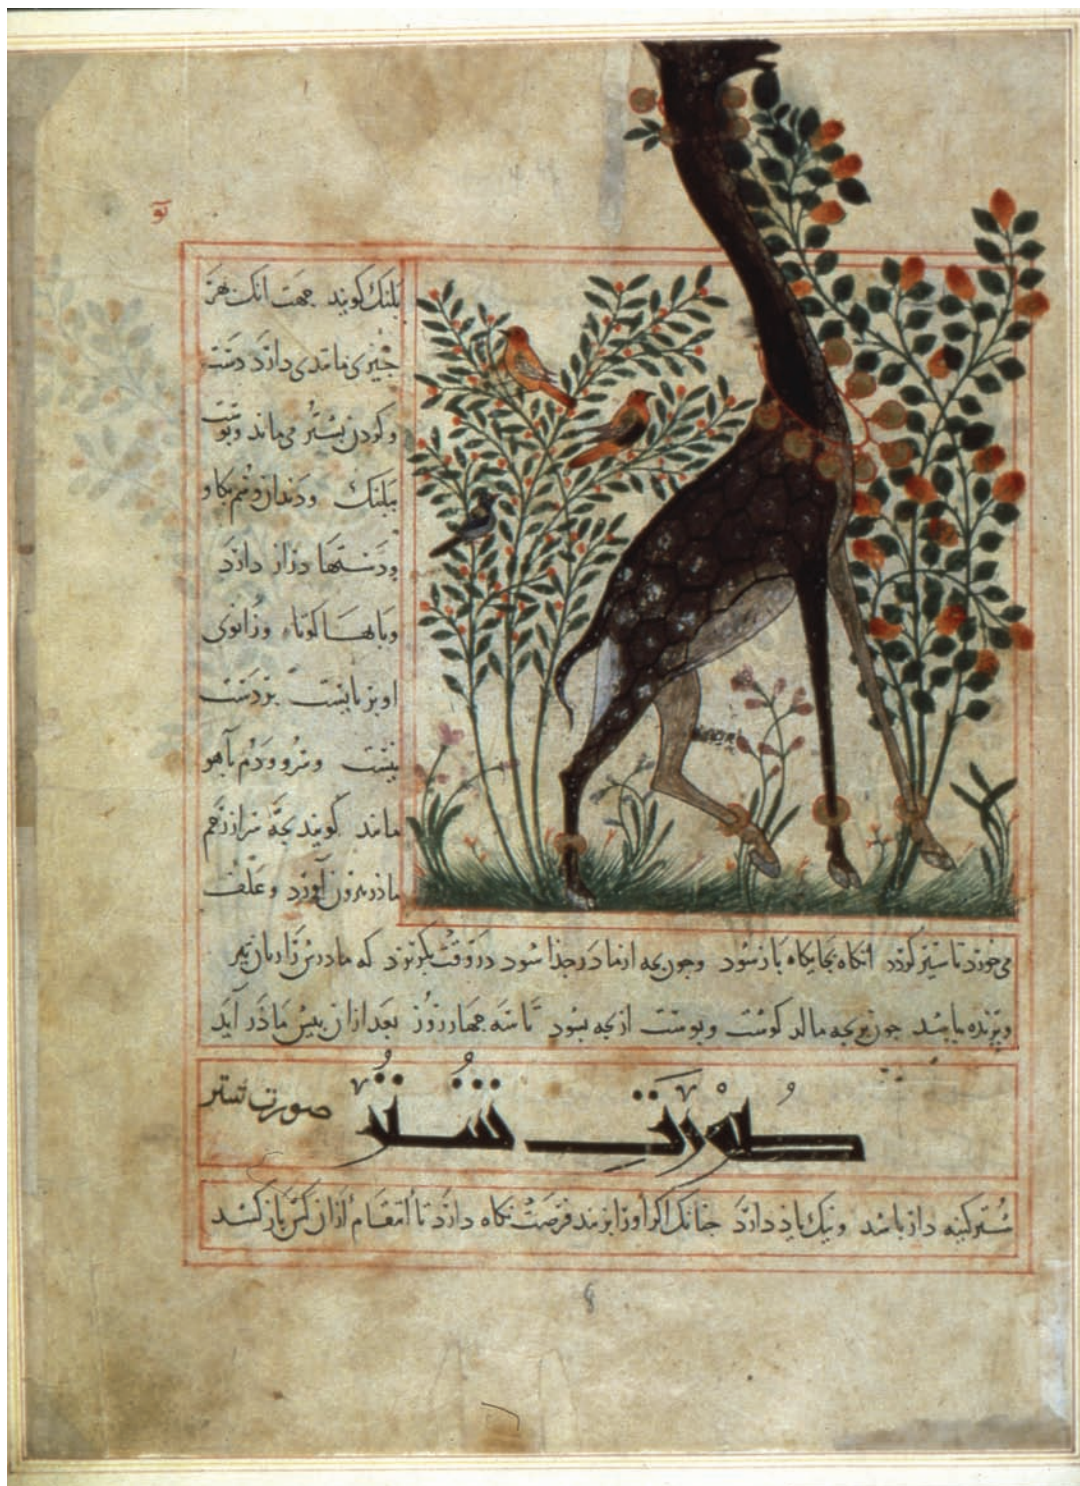 پلنك كويند جهت آنك بهر
جیزی مانندی دارد دست
و كردن بشتر می ماند و پوست
ببلنك ودندان وسم بكاو
ودستها دراز دارد
وپایها كوتاه وزانوی
او بر پایست بر دست
نیست وسرو ودم بآهو
ماند كویند بجه سر از رحم
ماذر بیرون آورد وعلف
می خورد تا سیر كردد آنكاه بجایكاه باز شود وجون بجه از ماذر جذا شود در وقت بكریزد كه ماذرش را زبان تیز
وبرنده باشد جون بر بجه مالد كوشت وبوست از بجه بشود تا سه جهار روز بعد از ان بیش ماذر آید
صُورَتِ شُتُر
صورت شتر
شتر كینه دار باشد ونیك یاذ دارد جنانك اكر او را بزند فرصت نكاه دارد تا انتقام از آن كس باز كشد